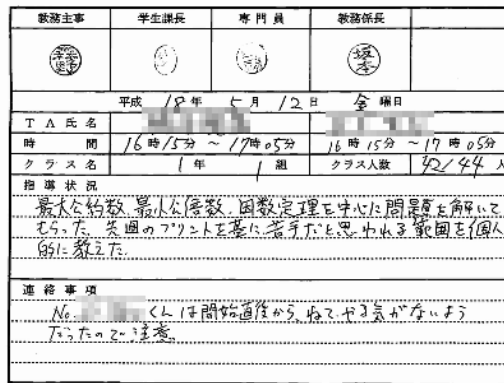 教務主事 学生課長 専門員 教務係長
坂本
平成 18年 5月 12日 金曜日
TA氏名
時間 16時15分 ~ 17時05分 16時15分 ~ 17時05分
クラス名 1年 1組 クラス人数 42/44 人
指導状況
最大公約数,最小公倍数,因数定理を中心に問題を解いて
もらった.先週のプリントを基に,苦手だと思われる範囲を個人
的に教えた.
連絡事項
No. くんは開始直後から,ねて,やる気がないよう
だったので注意。